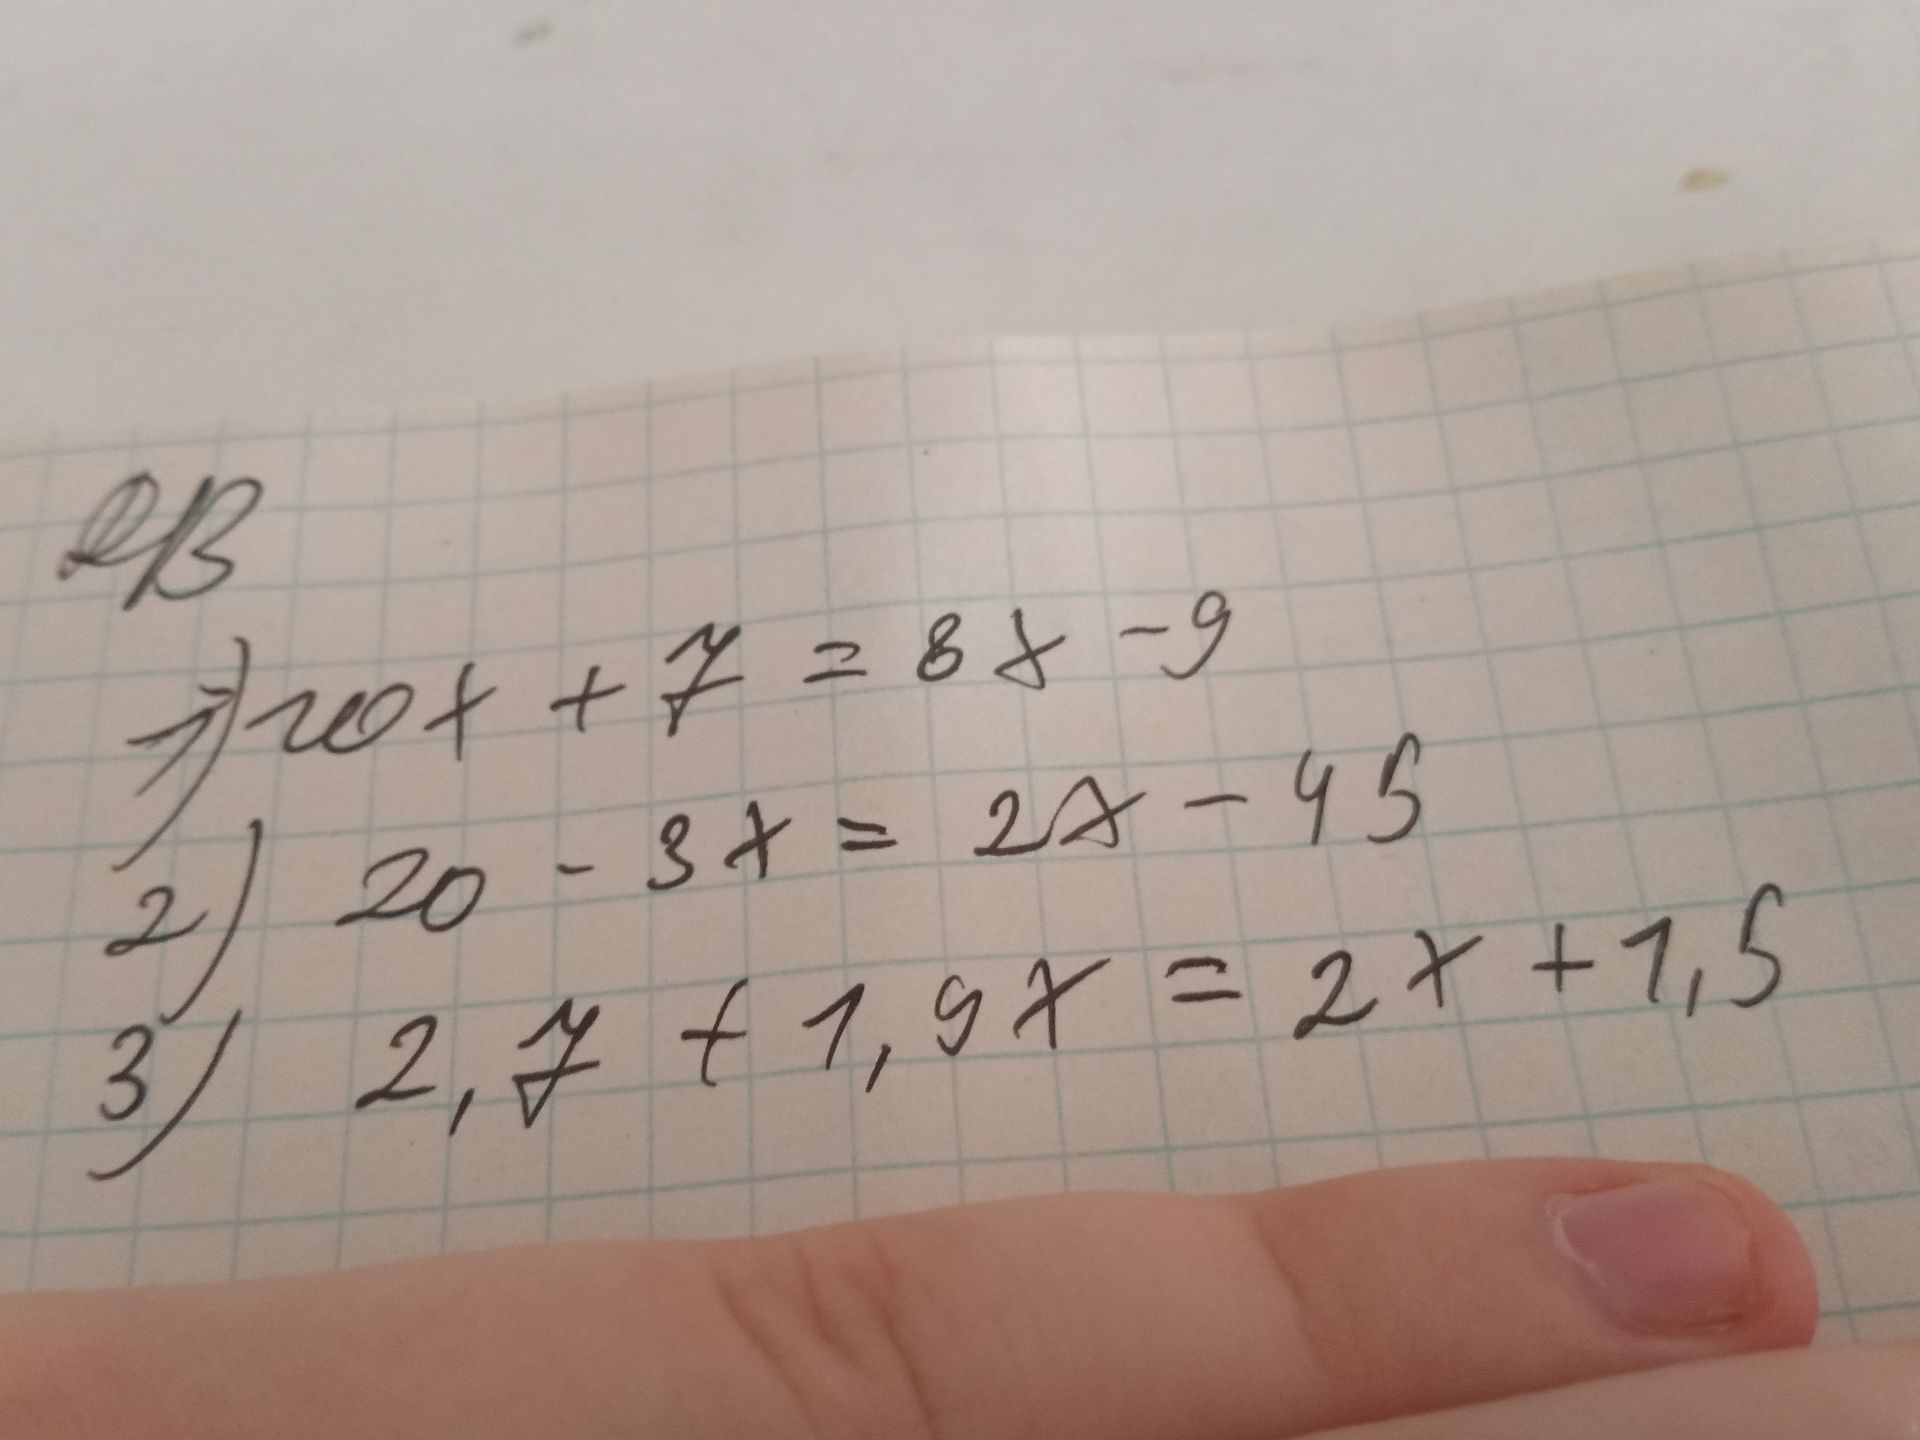 2В
1) 10x + 7 = 8x - 9
2) 20 - 3x = 2x - 45
3) 2,7 + 1,9x = 2x + 1,5